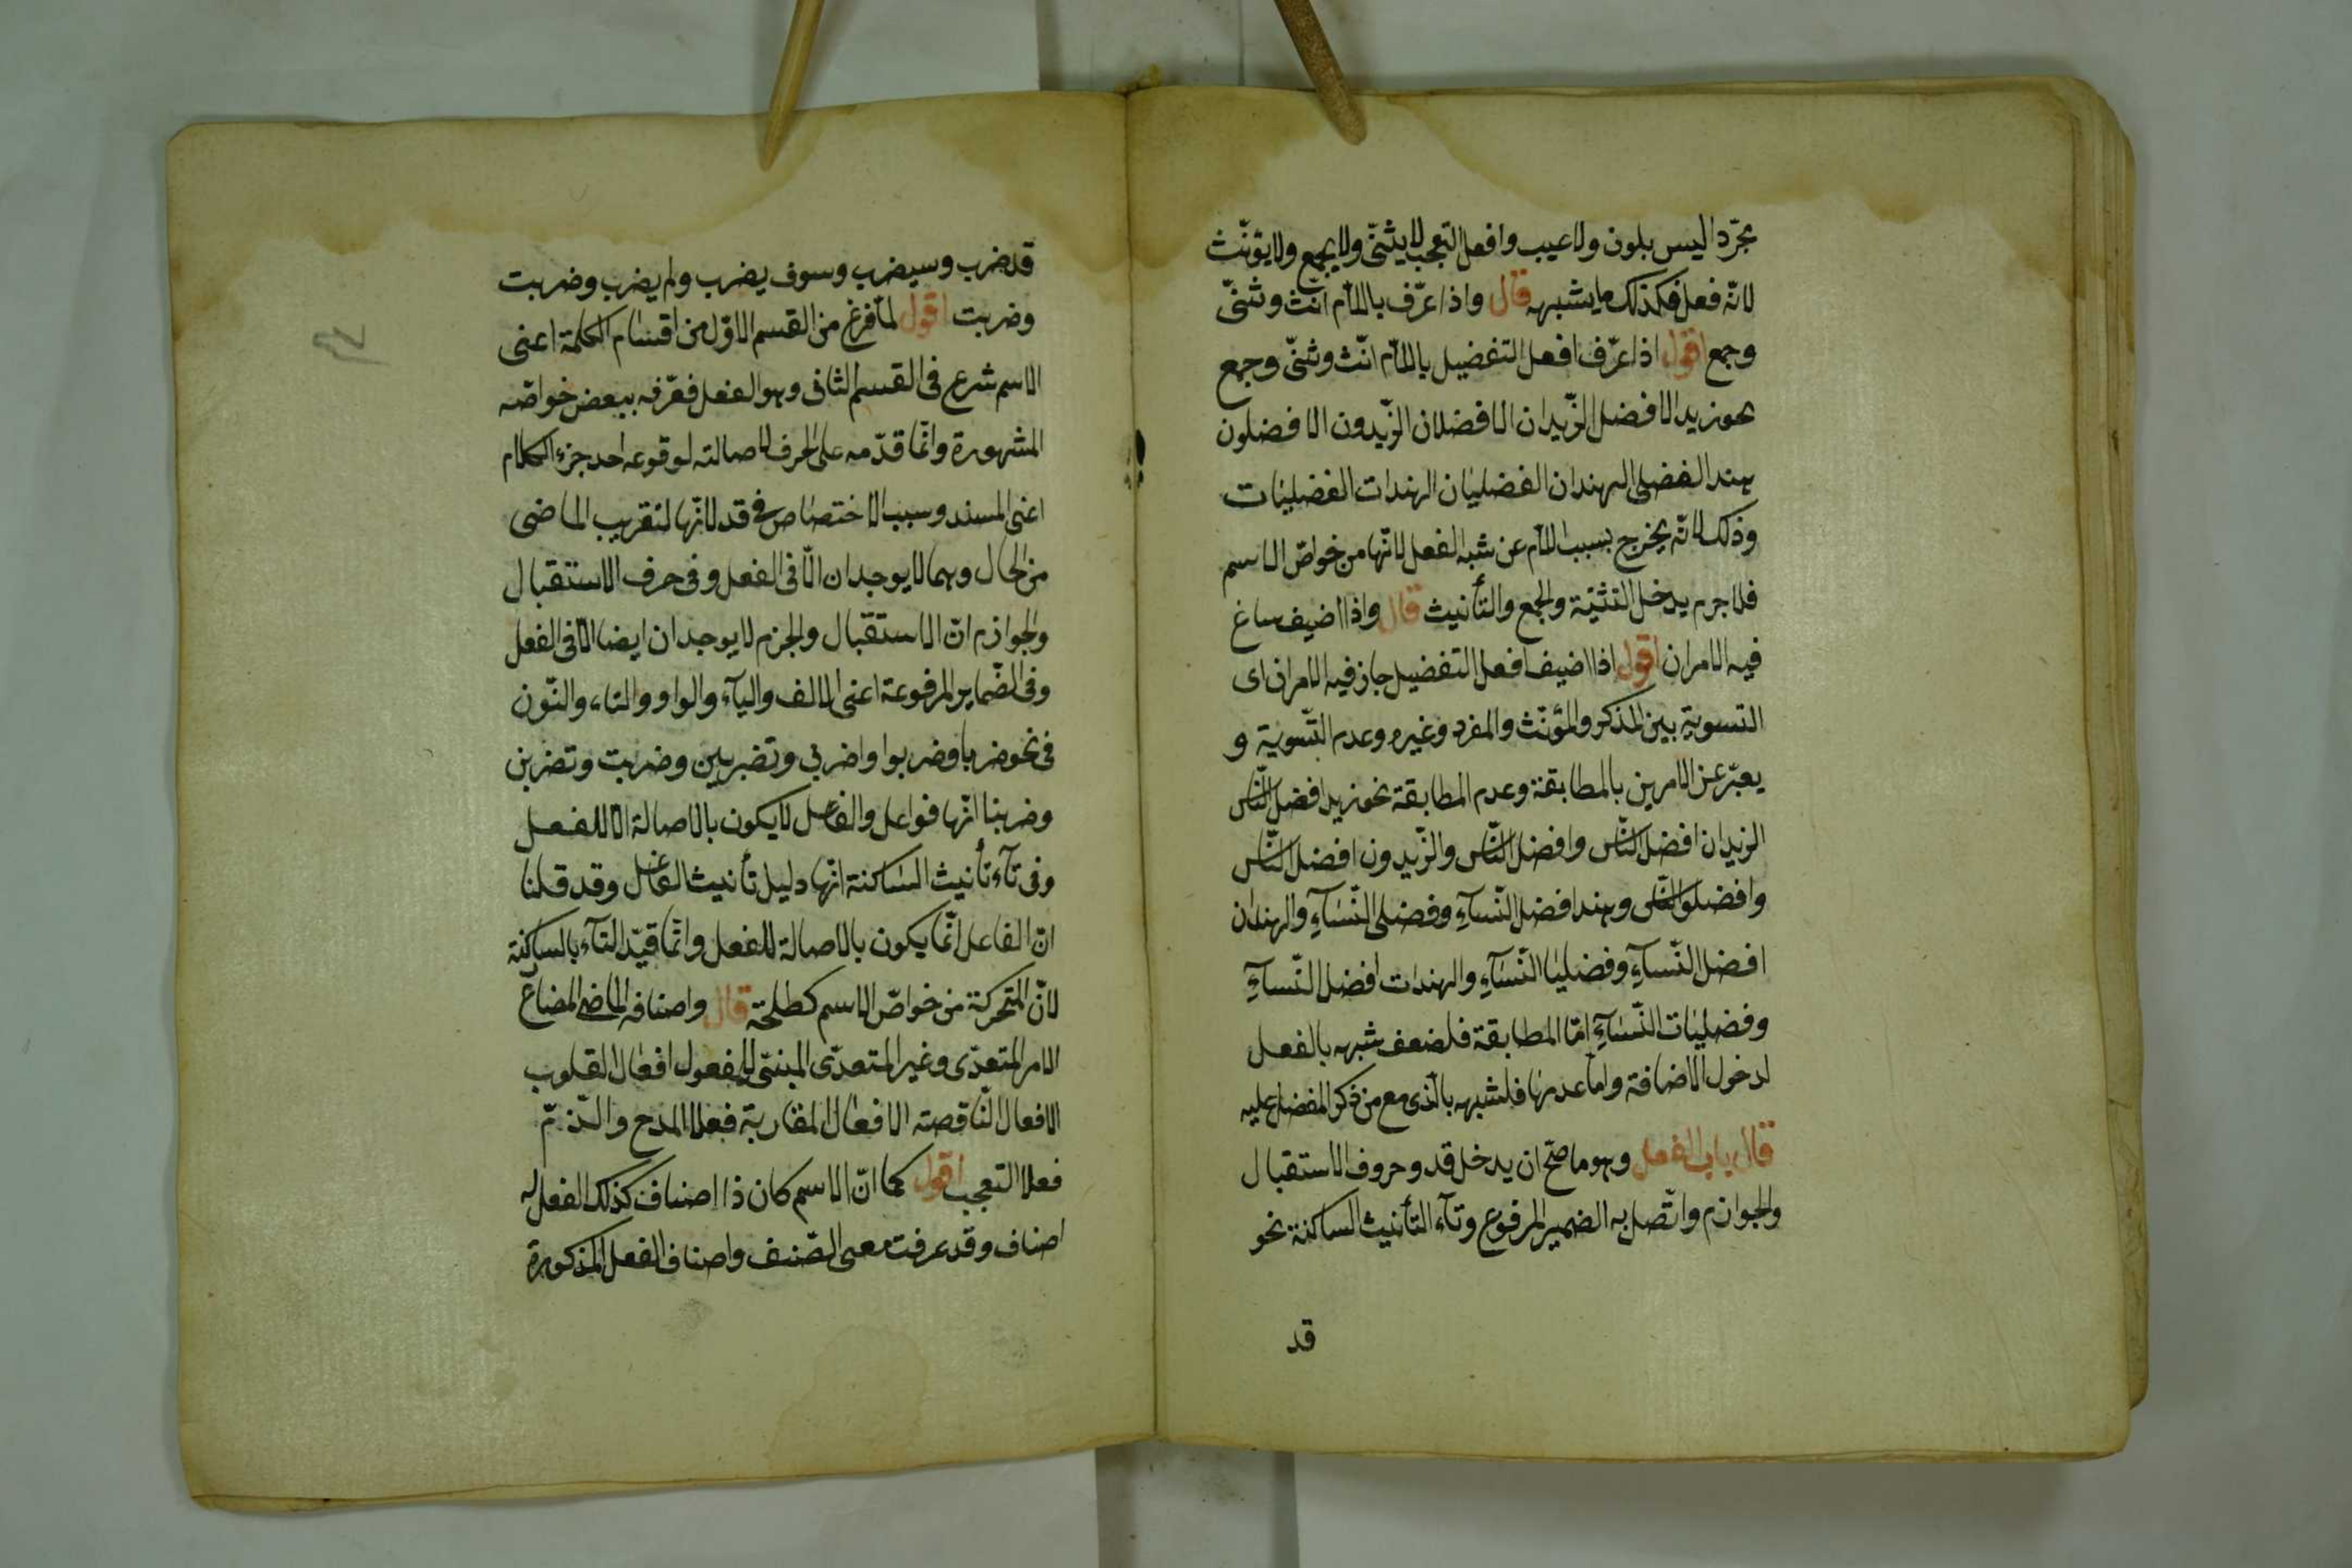 مجرّدا ليس بلون ولا عيب وافعل التعجب لا يثنّى ولا يجمع ولا يؤنّث
لانّه فعل فكذلك ما يشبهه قال واذا عرّف باللام انّث وثنّى
وجمع اقول اذا عرّف افعل التفضيل باللام انّث وثنّى وجمع
نحو زيد الافضل الزّيدان الافضلان الزّيدون الافضلون
هند الفضلى الهندان الفضليان الهندات الفضليات
وذلك لانّه يخرج بسبب اللام عن شبه الفعل لانّها من خواصّ الاسم
فلا جرم يدخل التثنية والجمع والتأنيث قال واذا اضيف ساغ
فيه الامران اقول اذا اضيف افعل التفضيل جاز فيه الامران اى
التسوية بين المذكر والمؤنّث والمفرد وغيره وعدم التّسوية و
يعبّر عن الامرين بالمطابقة وعدم المطابقة نحو زيد افضل النّاس
الزيدان افضل النّاس وافضل النّاس والزّيدون افضل النّاس
وافضلو النّاس وهند افضل النّسآءِ وفضلى النّسآءِ والهندان
افضل النّسآءِ وفضليا النّسآءِ والهندات افضل النّسآءِ
وفضليات النّسآءِ امّا المطابقة فلضعف شبهه بالفعل
لدخول الاضافة وامّا عدمها فلشبهه بالّذى مع من ذكر المفضل عليه
قال باب الفعل وهو ما صحّ ان يدخل قد وحروف الاستقبال
والجوازم واتّصل به الضمير المرفوع وتآء التأنيث الساكنة نحو
قد
قد ضرب وسيضرب وسوف يضرب ولم يضرب وضربت
وضربت اقول لمّا فرغ من القسم الاوّل من اقسام الكلمة اعنى
الاسم شرع فى القسم الثانى وهو الفعل فعرّفه ببعض خواصّه
المشهورة وانّما قدّمه على الحرف لاصالته لوقوعه احد جزء الكلام
اعنى المسند وسبب الاختصاص فى قد لانّها لتقريب الماضى
من الحال وهما لا يوجدان الّا فى الفعل وفى حرف الاستقبال
والجوازم انّ الاستقبال والجزم لا يوجدان ايضا الّا فى الفعل
وفى الضّماير المرفوعة اعنى الالف واليآء والواو والتاء والنّون
فى نحو ضربا وضربوا واضربى وتضربين وضربت وتضربن
وضربنا انّها فواعل والفاعل لا يكون بالاصالة الّا للفعل
وفى تآء تأنيث الساكنة انّها دليل تأنيث الفاعل وقد قلنا
انّ الفاعل انّما يكون بالاصالة للفعل وانّما قيّد التآء بالساكنة
لانّ المتحركة من خواصّ الاسم كطلحة قال واصنافه الماضى المضارع
الامر المتعدّى وغير المتعدّى المبنىّ للمفعول افعال القلوب
الافعال النّاقصة الافعال المقاربة فعلا المدح والذّمّ
فعلا التعجب اقول كما انّ الاسم كان ذا اصناف كذلك الفعل له
اصناف وقد عرفت معنى الصّنف واصناف الفعل المذكورة